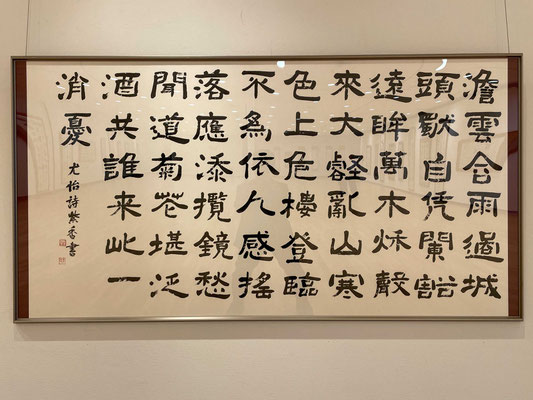 澹雲含雨過城
頭獨自凭闌豁
遠眸萬木秋聲
來大壑亂山寒
色上危樓登臨
不為依人感搖
落應添攬鏡愁
聞道菊花堪泛
酒共誰来此一
消憂
尤怡詩紫香書